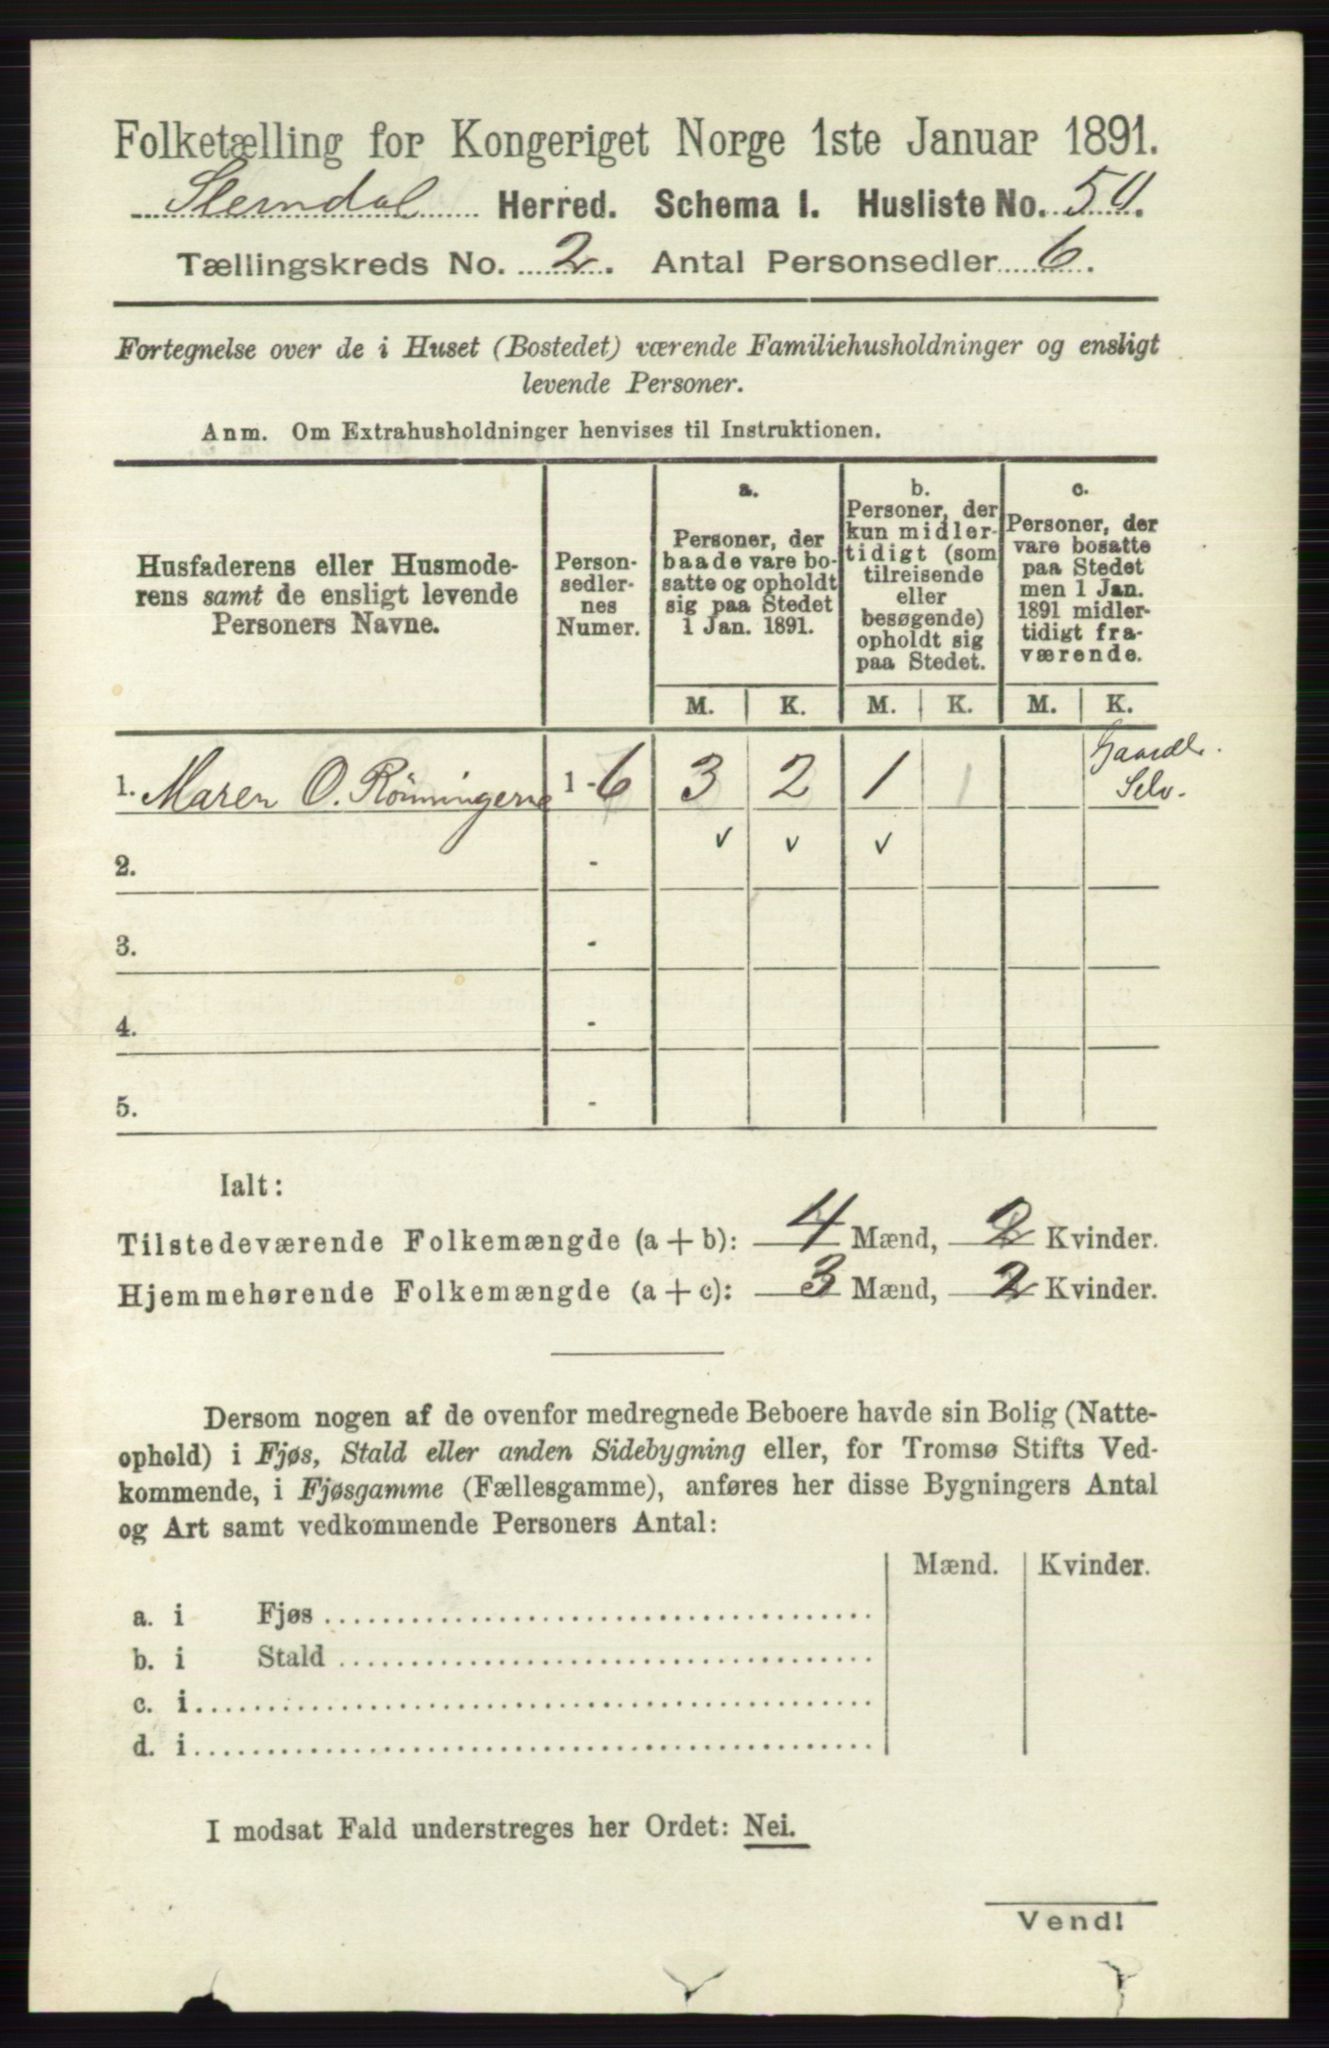 Folketælling for Kongeriget Norge 1ste Januar 1891.
Slemdal Herred. Schema I. Husliste No. 50.
Tællingskreds No. 2. Antal Personsedler 6.
Fortegnelse over de i Huset (Bostedet) værende Familiehusholdninger og ensligt
levende Personer.
Anm. Om Extrahusholdninger henvises til Instruktionen.
Husfaderens eller Husmode-
rens samt de ensligt levende
Personers Navne.
Person-
sedler-
nes
Numer.
a.
Personer, der
baade vare bo-
satte og opholdt
sig paa Stedet
1 Jan. 1891.
b.
Personer, der
kun midler-
tidigt (som
tilreisende
eller
besøgende)
opholdt sig
paa Stedet.
c.
Personer, der
vare bosatte
paa Stedet
men 1 Jan.
1891 midler-
tidigt fra-
værende.
M. K. M. K. M. K.
Gaardb.
Selv.
1. Maren O. Rönningerne 1 - 6 3 2 1 1
✓ ✓ ✓
2. -
3. -
4. -
5. -
Ialt:
Tilstedeværende Folkemængde (a + b): 4 Mænd, 2 Kvinder.
Hjemmehørende Folkemængde (a + c): 3 Mænd, 2 Kvinder.
Dersom nogen af de ovenfor medregnede Beboere havde sin Bolig (Natte-
ophold) i Fjøs, Stald eller anden Sidebygning eller, for Tromsø Stifts Ved-
kommende, i Fjøsgamme (Fællesgamme), anføres her disse Bygningers Antal
og Art samt vedkommende Personers Antal:
Mænd. Kvinder.
a. i Fjøs
b. i Stald
c. i
d. i
I modsat Fald understreges her Ordet: Nei.
Vend!